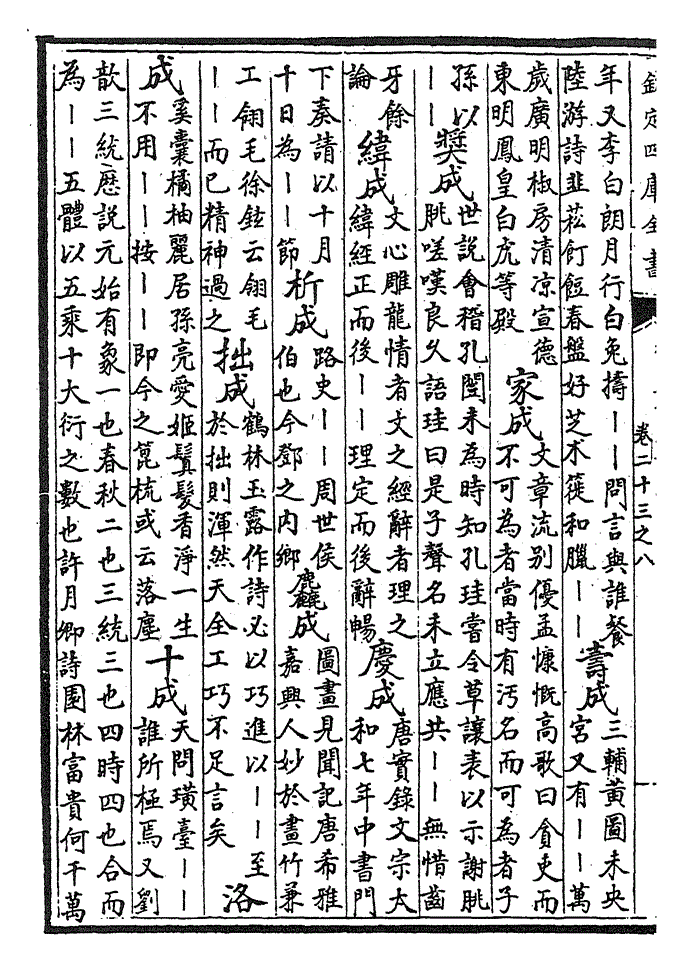 欽定四庫全書
卷二十三之八
年又李白朗月行白兔擣——問言與誰餐
陸游詩韭菘飣餖春盤好芝朮蓰和臘——
壽成
三輔黃圖未央
宮又有——萬
歲廣明椒房清涼宣德
東明鳳皇白虎等殿
家成
文章流別優孟慷慨高歌曰貪吏而
不可為者當時有汚名而可為者子
孫以
——
獎成
世說會稽孔闓未為時知孔珪嘗令草讓表以示謝朓
朓嗟嘆良久語珪曰是子聲名未立應共——無惜齒
牙餘
論
緯成
文心雕龍情者文之經辭者理之
緯經正而後——理定而後辭暢
慶成
唐實錄文宗太
和七年中書門
下奏請以十月
十日為——節
析成
路史——周世侯
伯也今鄧之內鄉
麤成
圖畫見聞記唐希雅
嘉興人妙於畫竹兼
工翎毛徐鉉云翎毛
——而已精神過之
拙成
鶴林玉露作詩必以巧進以——至
於拙則渾然天全工巧不足言矣
洛
成
奚囊橘柚麗居孫亮愛姬鬒髮香淨一生
不用——按——即今之箆梳或云落塵
十成
天問璜臺——
誰所極焉又劉
歆三統歷說元始有象一也春秋二也三統三也四時四也合而
為——五體以五乘十大衍之數也許月卿詩園林富貴何千萬